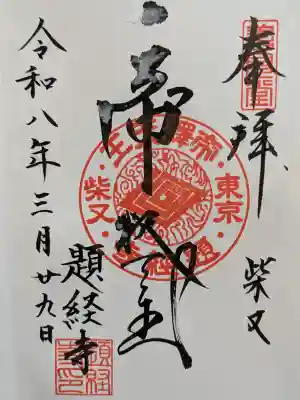 奉拝
柴又
帝釈天王
東京
柴又
題経寺
令和八年三月廿九日